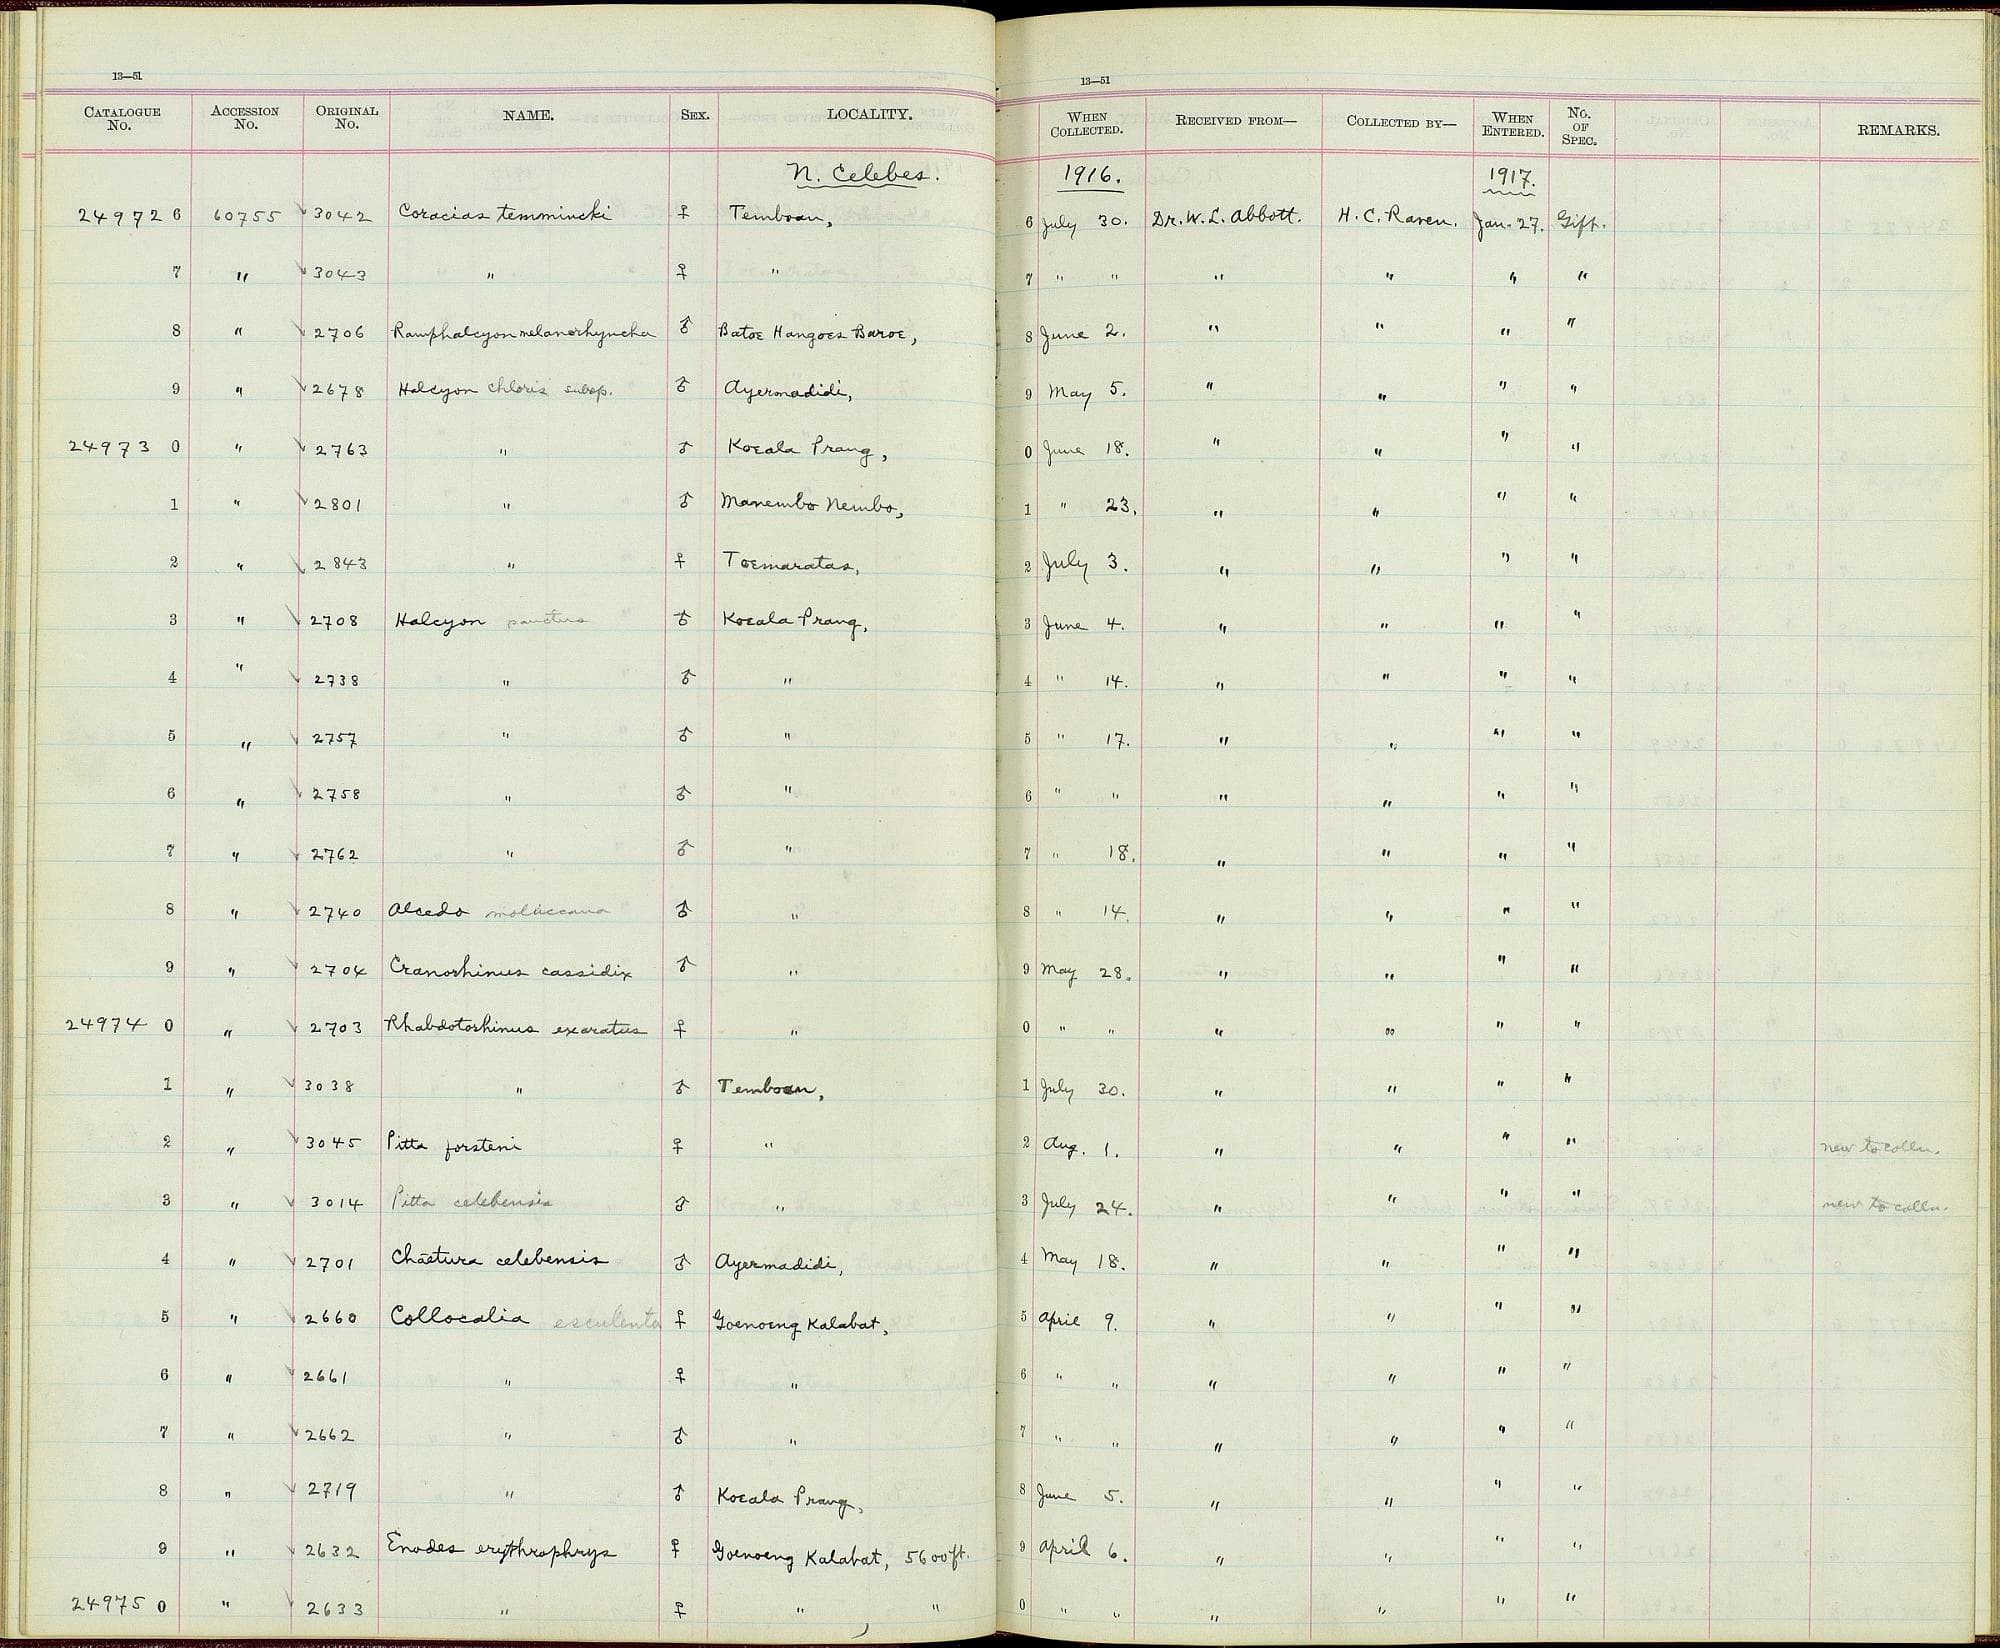 13—51
CATALOGUE No. ACCESSION No. ORIGINAL No. NAME. SEX. LOCALITY.
13—51
WHEN COLLECTED. RECEIVED FROM— COLLECTED BY— WHEN ENTERED. No. OF SPEC. REMARKS.
N. Celebes. 1916. 1917.
24972 6 60755 3042 Coracias temmincki ♀ Temboan, 6 July 30. Dr. W. L. Abbott. H. C. Raven. Jan. 27. Gift.
7 " 3043 " ♀ " 7 " " " " " "
8 " 2706 Ramphalcyon melanorhyncha ♂ Batoe Hangoes Baroe, 8 June 2. " " " "
9 " 2678 Halcyon chloris subsp. ♂ Ayermadidi, 9 May 5. " " " "
24973 0 " 2763 " ♂ Koeala Prang, 0 June 18. " " " "
1 " 2801 " ♂ Manembo Nembo, 1 " 23. " " " "
2 " 2843 " ♀ Toemaratas, 2 July 3. " " " "
3 " 2708 Halcyon sanctus ♂ Koeala Prang, 3 June 4. " " " "
4 " 2738 " ♂ " 4 " 14. " " " "
5 " 2757 " ♂ " 5 " 17. " " " "
6 " 2758 " ♂ " 6 " " " " " "
7 " 2762 " ♂ " 7 " 18. " " " "
8 " 2740 Alcedo moluccana ♂ " 8 " 14. " " " "
9 " 2704 Cranorhinus cassidix ♂ " 9 May 28. " " " "
24974 0 " 2703 Rhabdotorhinus exaratus ♀ " 0 " " " " " "
1 " 3038 " ♂ Temboan, 1 July 30. " " " "
2 " 3045 Pitta forsteni ♀ " 2 Aug. 1. " " " " new to colln.
3 " 3014 Pitta celebensis ♂ " 3 July 24. " " " " new to colln.
4 " 2701 Chaetura celebensis ♂ Ayermadidi, 4 May 18. " " " "
5 " 2660 Collocalia esculenta ♀ Goenoeng Kalabat, 5 April 9. " " " "
6 " 2661 " ♀ " 6 " " " " " "
7 " 2662 " ♂ " 7 " " " " " "
8 " 2719 " ♂ Koeala Prang, 8 June 5. " " " "
9 " 2632 Enodes erythrophrys ♀ Goenoeng Kalabat, 5600 ft. 9 April 6. " " " "
24975 0 " 2633 " ♀ " , " 0 " " " " " "